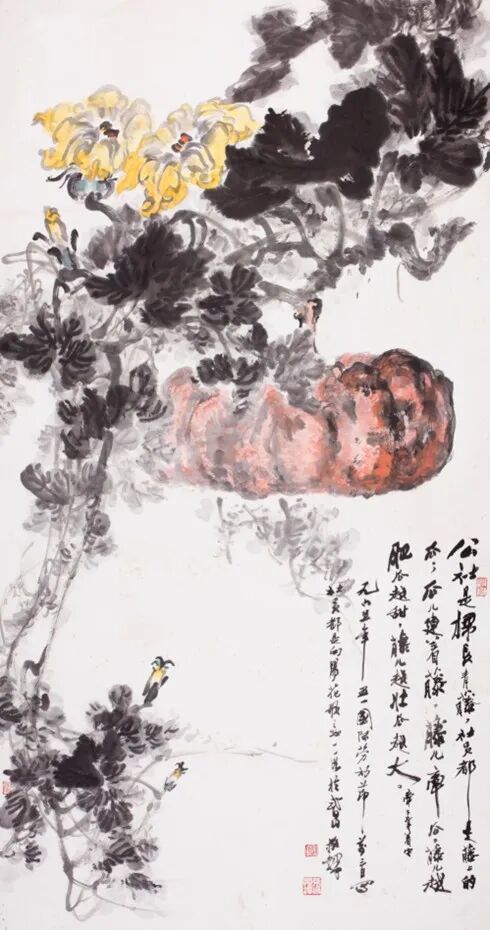 公社是棵長青藤，社员都是藤上的
瓜，瓜儿連着藤。藤儿牵瓜。藤儿越
肥瓜越甜，藤儿越壮瓜越大。
一九六五年五一國际劳动节
社员都是向陽花歌意一於武昌